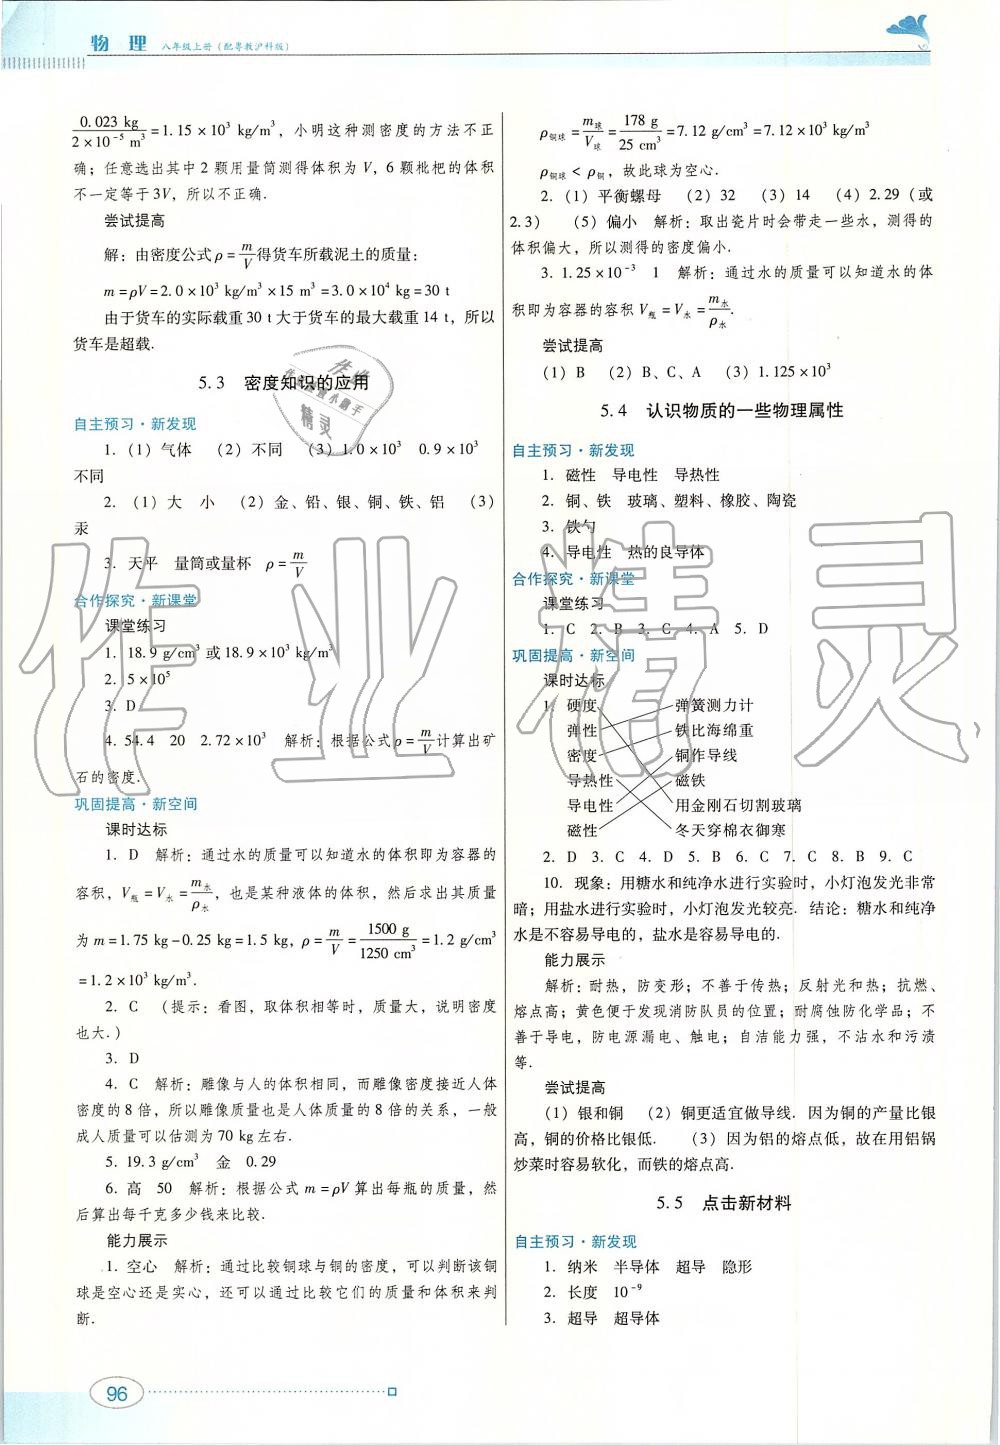 物　理　八年级上册（配粤教沪科版）
0.023 kg/2×10⁻⁵ m³=1.15×10³ kg/m³，小明这种测密度的方法不正
确；任意选出其中2颗用量筒测得体积为V，6颗枇杷的体积
不一定等于3V，所以不正确.
尝试提高
解：由密度公式ρ=m/V得货车所载泥土的质量：
m=ρV=2.0×10³ kg/m³×15 m³=3.0×10⁴ kg=30 t
由于货车的实际载重30 t大于货车的最大载重14 t，所以
货车是超载.
5.3　密度知识的应用
自主预习·新发现
1.（1）气体　（2）不同　（3）1.0×10³　0.9×10³
不同
2.（1）大　小　（2）金、铅、银、铜、铁、铝　（3）
汞
3. 天平　量筒或量杯　ρ=m/V
合作探究·新课堂
课堂练习
1. 18.9 g/cm³ 或18.9×10³ kg/m³
2. 5×10⁵
3. D
4. 54.4　20　2.72×10³　解析：根据公式ρ=m/V计算出矿
石的密度.
巩固提高·新空间
课时达标
1. D　解析：通过水的质量可以知道水的体积即为容器的
容积，V瓶=V水=m水/ρ水，也是某种液体的体积，然后求出其质量
为m=1.75 kg-0.25 kg=1.5 kg，ρ=m/V=1500 g/1250 cm³=1.2 g/cm³
=1.2×10³ kg/m³.
2. C　（提示：看图，取体积相等时，质量大，说明密度
也大.）
3. D
4. C　解析：雕像与人的体积相同，而雕像密度接近人体
密度的8倍，所以雕像质量也是人体质量的8倍的关系，一般
成人质量可以估测为70 kg左右.
5. 19.3 g/cm³　金　0.29
6. 高　50　解析：根据公式m=ρV算出每瓶的质量，然
后算出每千克多少钱来比较.
能力展示
1. 空心　解析：通过比较铜球与铜的密度，可以判断该铜
球是空心还是实心，还可以通过比较它们的质量和体积来判
断.
ρ铜球=m球/V球=178 g/25 cm³=7.12 g/cm³=7.12×10³ kg/m³
ρ铜球＜ρ铜，故此球为空心.
2.（1）平衡螺母　（2）32　（3）14　（4）2.29（或
2.3）　（5）偏小　解析：取出瓷片时会带走一些水，测得的
体积偏大，所以测得的密度偏小.
3. 1.25×10⁻³　1　解析：通过水的质量可以知道水的体
积即为容器的容积V瓶=V水=m水/ρ水.
尝试提高
（1）B　（2）B、C、A　（3）1.125×10³
5.4　认识物质的一些物理属性
自主预习·新发现
1. 磁性　导电性　导热性
2. 铜、铁　玻璃、塑料、橡胶、陶瓷
3. 铁勺
4. 导电性　热的良导体
合作探究·新课堂
课堂练习
1. C　2. B　3. C　4. A　5. D
巩固提高·新空间
课时达标
1. 硬度　弹簧测力计
弹性　铁比海绵重
密度　铜作导线
导热性　磁铁
导电性　用金刚石切割玻璃
磁性　冬天穿棉衣御寒
2. D　3. C　4. D　5. B　6. C　7. C　8. B　9. C
10. 现象：用糖水和纯净水进行实验时，小灯泡发光非常
暗；用盐水进行实验时，小灯泡发光较亮. 结论：糖水和纯净
水是不容易导电的，盐水是容易导电的.
能力展示
解析：耐热，防变形；不善于传热；反射光和热；抗燃、
熔点高；黄色便于发现消防队员的位置；耐腐蚀防化学品；不
善于导电，防电源漏电、触电；自洁能力强，不沾水和污渍
等.
尝试提高
（1）银和铜　（2）铜更适宜做导线. 因为铜的产量比银
高，铜的价格比银低.　（3）因为铝的熔点低，故在用铝锅
炒菜时容易软化，而铁的熔点高.
5.5　点击新材料
自主预习·新发现
1. 纳米　半导体　超导　隐形
2. 长度　10⁻⁹
3. 超导　超导体
96
作业精灵